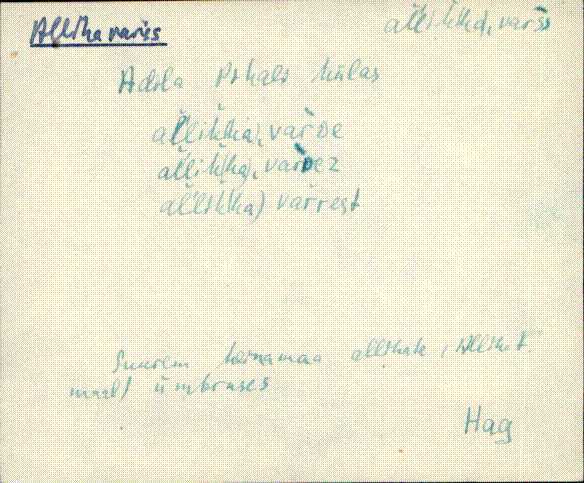 Allika varss
al̆lik(ka), vars̆
Adila Pihali külas
al̆lik(ka), var̀de
al̆lik(ka), var̀dez
al̆lik(ka) varrest
Suurem heinamaa allikate (Alliket
maal) ümbruses
Hag